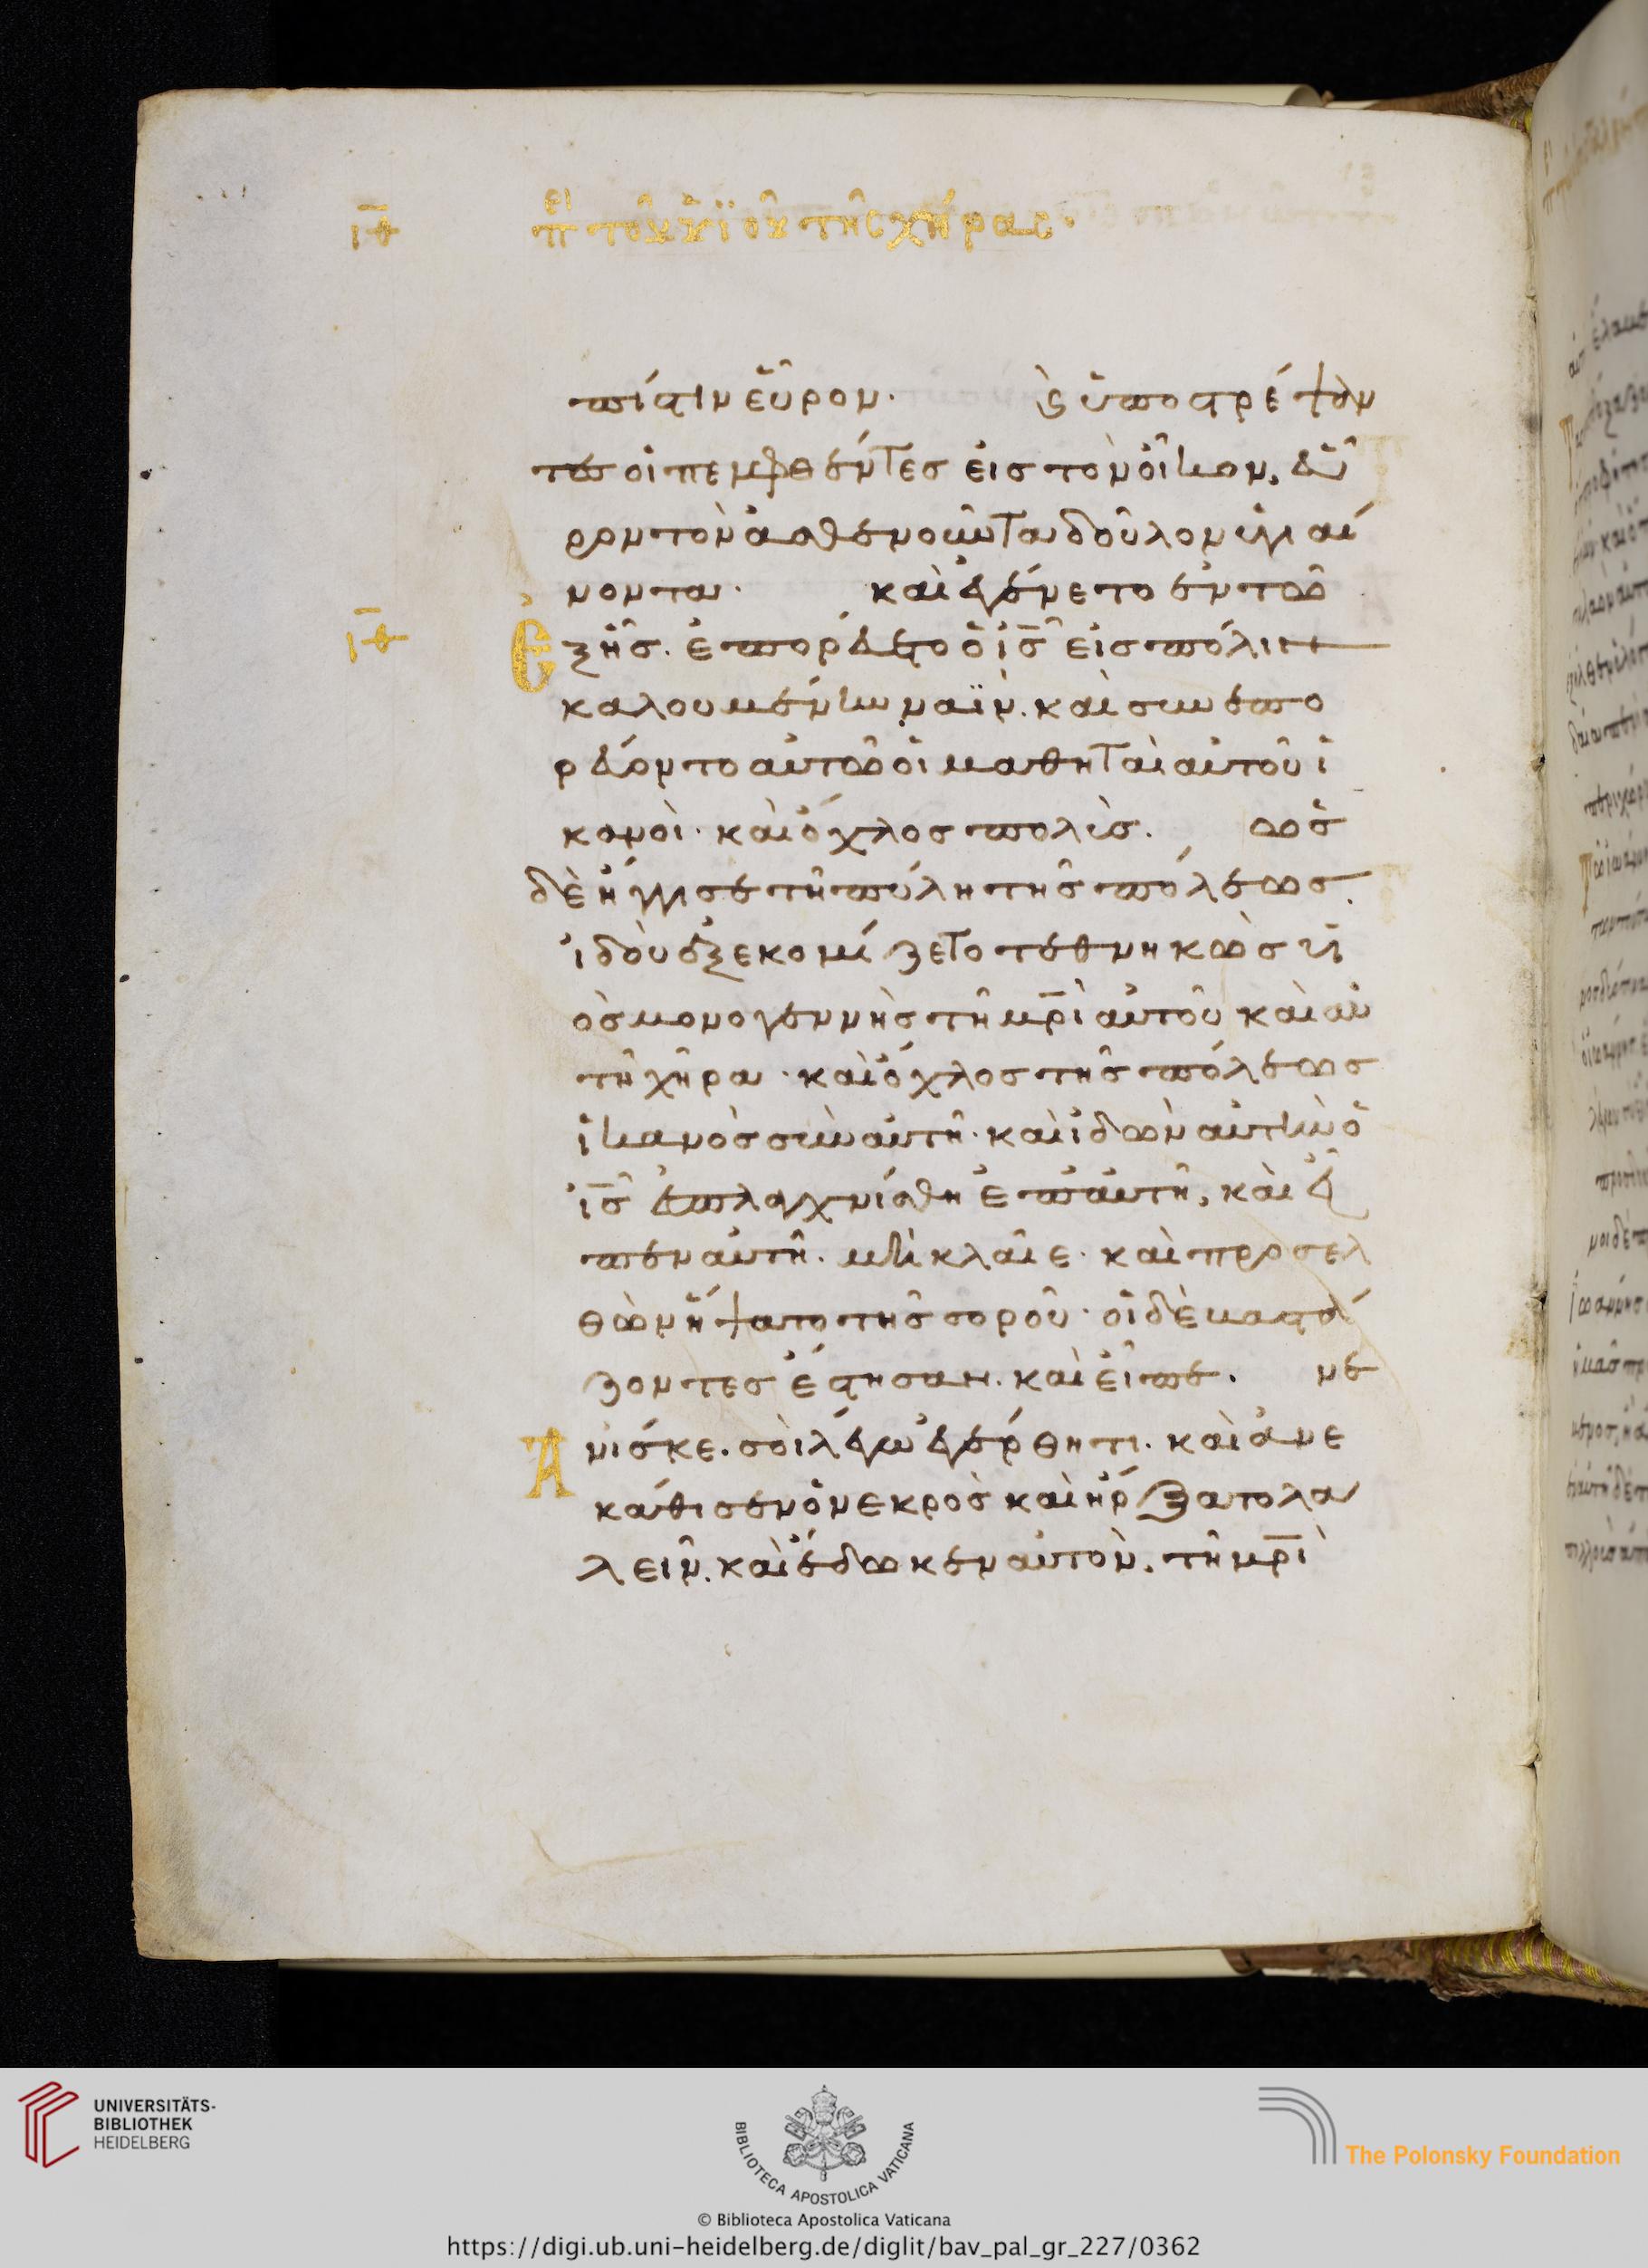 ιθ περὶ τοῦ υἱοῦ τῆς χήρας·
πίστιν εὗρον. Καὶ ὑποστρέψαν
τες οἱ πεμφθέντες εἰς τὸν οἶκον, εὗ
ρον τὸν ἀσθενοῦντα δοῦλον ὑγιαί
νοντα. καὶ ἐγένετο ἐν τῶ
ιθ Ἑξῆς. ἐπορεύετο ὁ ι̅ς̅ εἰς πόλιν
καλουμένην ναΐν. καὶ συνεπο
ρεύοντο αὐτῶ οἱ μαθηταὶ αὐτοῦ ἱ
κανοὶ· καὶ ὄχλος πολὺς. ὡς
δὲ ἤγγισε τῆ πύλη τῆς πόλεως.
ἰδοὺ ἐξεκομίζετο τεθνηκὼς υἱ
ὸς μονογεννὴς τῆ μ̅ρ̅ὶ αὐτοῦ καὶ αὐ
τῆ χῆρα· καὶ ὄχλος τῆς πόλεως
ἱκανὸς σὺν αὐτῆ· καὶ ἰδὼν αὐτὴν ὁ
ι̅ς̅ ἐσπλαγχνίσθη ἐπ' αὐτῆ, καὶ εἶ
πεν αὐτῆ. μὴ κλαῖε· καὶ προσελ
θὼν ἥψατο τῆς σοροῦ· οἱ δὲ βαστά
ζοντες ἔστησαν. καὶ εἶπε. νε
Ανίσκε. σοὶ λέγω ἐγέρθητι. καὶ ἀνε
κάθισεν ὁ νεκρὸς καὶ ἤρξατο λα
λεῖν. καὶ ἔδωκεν αὐτὸν. τῆ μ̅ρ̅ὶ
UNIVERSITÄTS-
BIBLIOTHEK
HEIDELBERG
BIBLIOTECA APOSTOLICA VATICANA
The Polonsky Foundation
© Biblioteca Apostolica Vaticana
https://digi.ub.uni-heidelberg.de/diglit/bav_pal_gr_227/0362